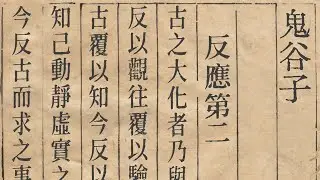 鬼谷子
反應第二
古之大化者乃與
反以觀往覆以驗
古覆以知今反以
知己動靜虛實之
今反古而求之事